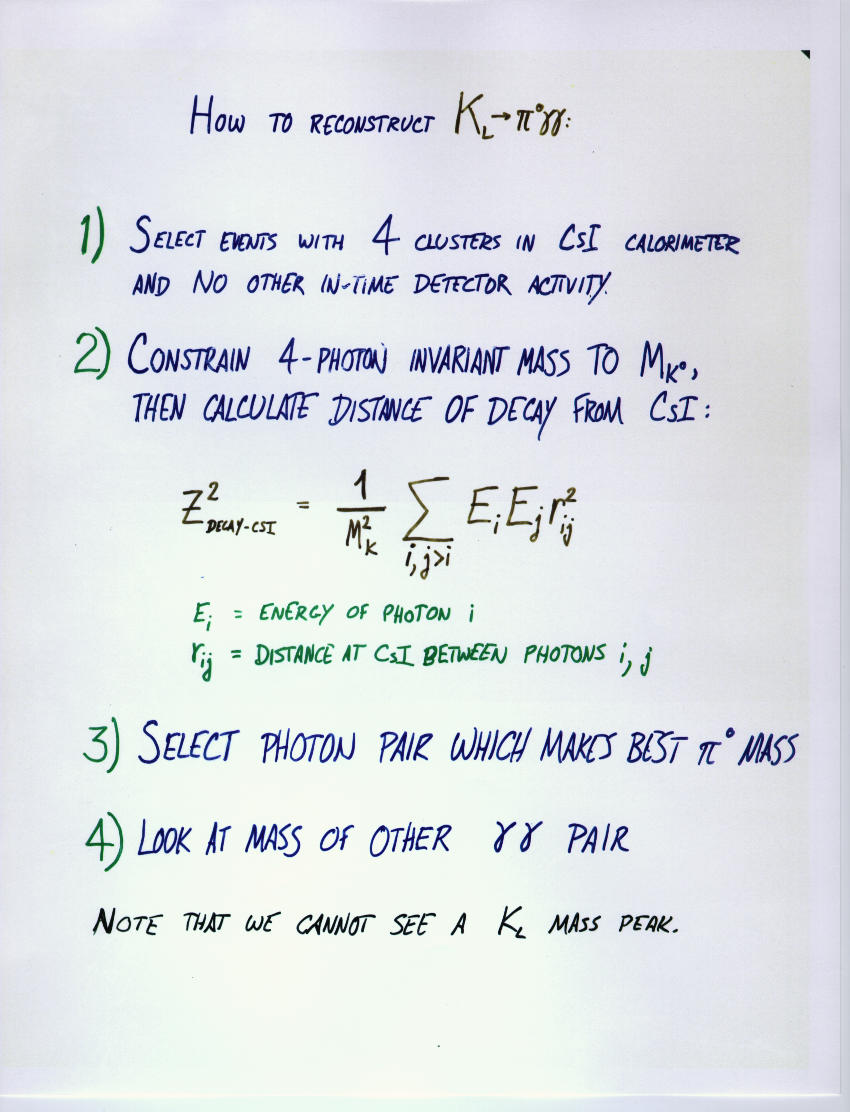 How to reconstruct K_L→π⁰γγ:
1) Select events with 4 clusters in CsI calorimeter
and no other in-time detector activity.
2) Constrain 4-photon invariant mass to M_K⁰,
then calculate distance of decay from CsI:
Z²_DECAY-CSI = 1/M²_K ∑_{i, j>i} E_i E_j r²_ij
E_i = energy of photon i
r_ij = distance at CsI between photons i, j
3) Select photon pair which makes best π⁰ mass
4) Look at mass of other γγ pair
Note that we cannot see a K_L mass peak.